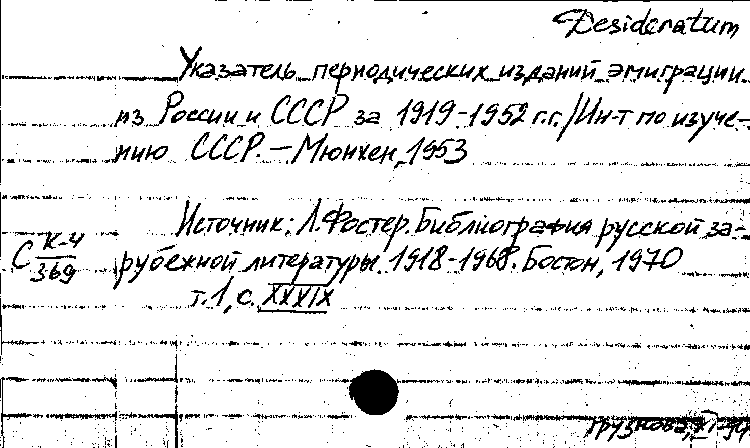 Desideratum
Указатель периодических изданий эмиграции
из России и СССР за 1919-1952 г.г./Ин-т по изуче-
нию СССР.—Мюнхен, 1953
Источник: Л.Фостер. Библиография русской за-
С К-4/369 рубежной литературы. 1918-1968. Бостон, 1970
т.1, с. XXXIX
Грузновая